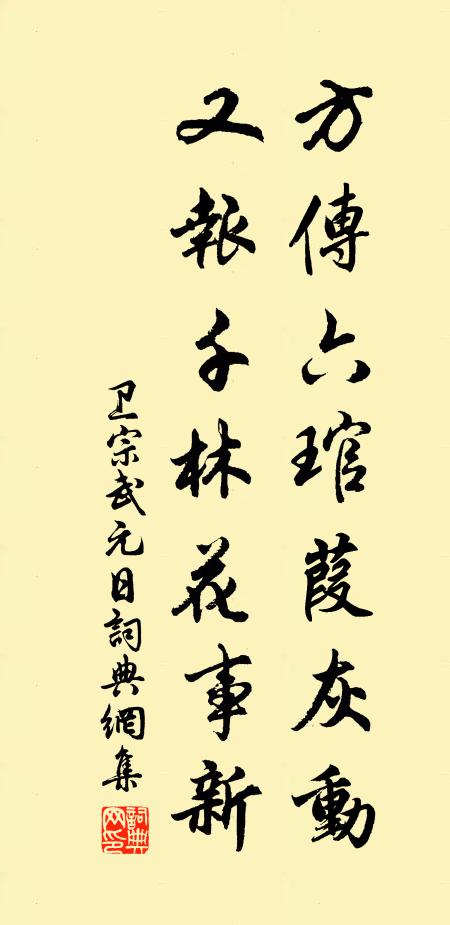 方傳六琯葭灰動
又報千林花事新
卫宗武元日詞典網集
詞典網印